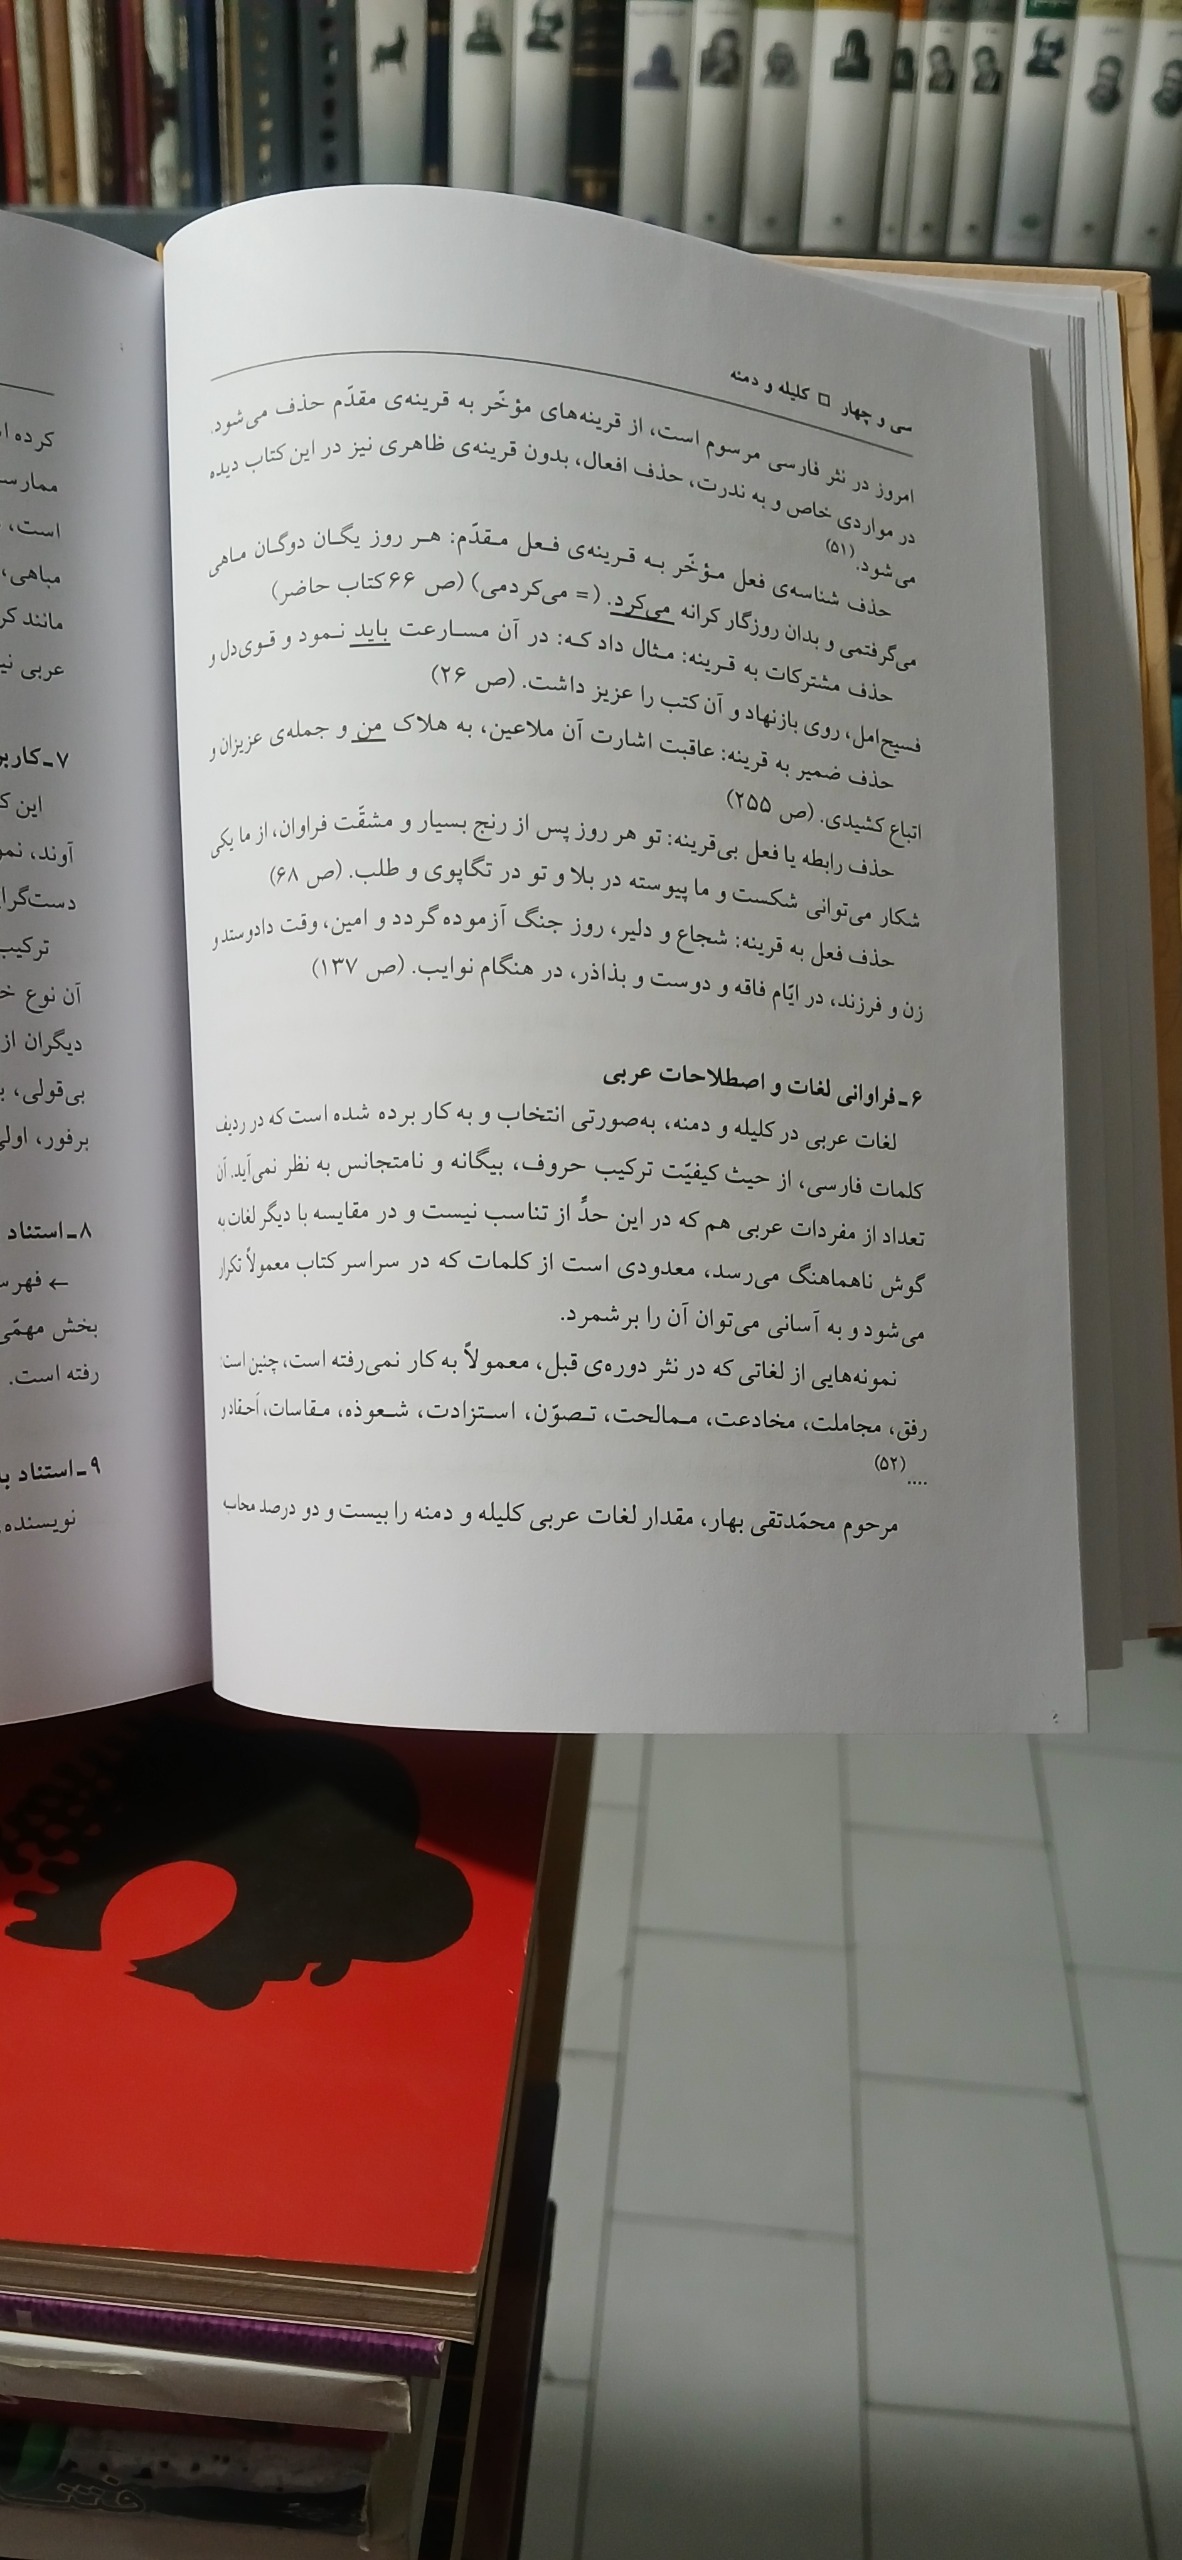 سی و چهار □ کلیله و دمنه
امروز در نثر فارسی مرسوم است، از قرینه‌های مؤخّر به قرینه‌ی مقدّم حذف می‌شود.
در مواردی خاص و به ندرت، حذف افعال، بدون قرینه‌ی ظاهری نیز در این کتاب دیده
می‌شود.(۵۱)
حذف شناسه‌ی فعل مؤخّر به قرینه‌ی فعل مقدّم: هر روز یگان دوگان ماهی
می‌گرفتمی و بدان روزگار کرانه می‌کرد. (= می‌کردمی) (ص ۶۶ کتاب حاضر)
حذف مشترکات به قرینه: مثال داد که: در آن مسارعت باید نمود و قوی‌دل و
فسیح‌امل، روی بازنهاد و آن کتب را عزیز داشت. (ص ۲۶)
حذف ضمیر به قرینه: عاقبت اشارت آن ملاعین، به هلاک من و جمله‌ی عزیزان و
اتباع کشیدی. (ص ۲۵۵)
حذف رابطه یا فعل بی‌قرینه: تو هر روز پس از رنج بسیار و مشقّت فراوان، از ما یکی
شکار می‌توانی شکست و ما پیوسته در بلا و تو در تگاپوی و طلب. (ص ۶۸)
حذف فعل به قرینه: شجاع و دلیر، روز جنگ آزموده گردد و امین، وقت دادوستد و
زن و فرزند، در ایّام فاقه و دوست و بذاذر، در هنگام نوایب. (ص ۱۳۷)
۶ـ فراوانی لغات و اصطلاحات عربی
لغات عربی در کلیله و دمنه، به‌صورتی انتخاب و به کار برده شده است که در ردیف
کلمات فارسی، از حیث کیفیّت ترکیب حروف، بیگانه و نامتجانس به نظر نمی‌آید. آن
تعداد از مفردات عربی هم که در این حدِّ از تناسب نیست و در مقایسه با دیگر لغات به
گوش ناهماهنگ می‌رسد، معدودی است از کلمات که در سراسر کتاب معمولاً تکرار
می‌شود و به آسانی می‌توان آن را برشمرد.
نمونه‌هایی از لغاتی که در نثر دوره‌ی قبل، معمولاً به کار نمی‌رفته است، چنین است:
رفق، مجاملت، مخادعت، ممالحت، تصوّن، استزادت، شعوذه، مقاسات، اَحقاد و
....(۵۲)
مرحوم محمّدتقی بهار، مقدار لغات عربی کلیله و دمنه را بیست و دو درصد محاسبه
کرده
است،
مباهی،
مانند
عربی
۷ـ
این
آوند،
ترکیب
آن نوع
دیگران از
بی‌قولی،
برفور،
۸ـ استناد
←
بخش
رفته است.
۹ـ استناد
نویسنده